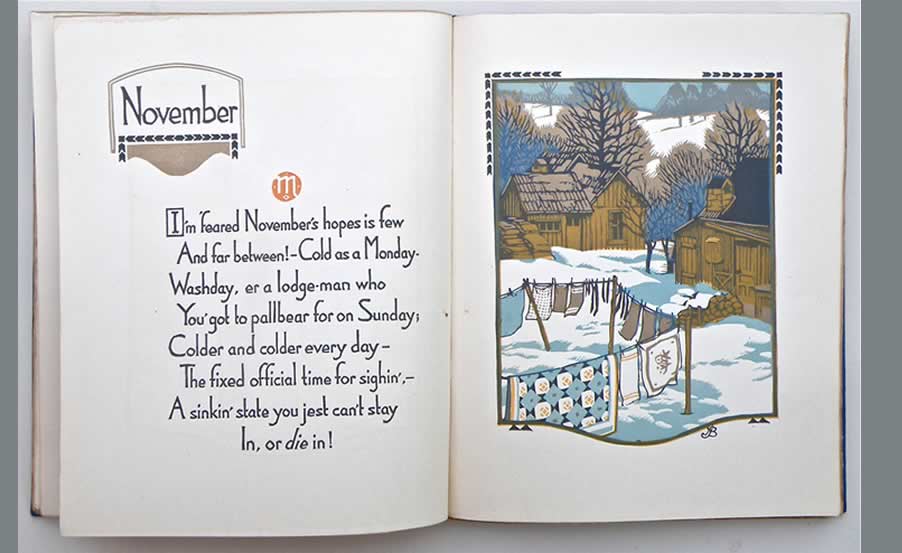 November
m
I'm 'feared November's hopes is few
And far between!-Cold as a Monday-
Washday, er a lodge-man who
You' got to pallbear for on Sunday;
Colder and colder every day-
The fixed official time for sighin',-
A sinkin' state you jest can't stay
In, or die in!
JB